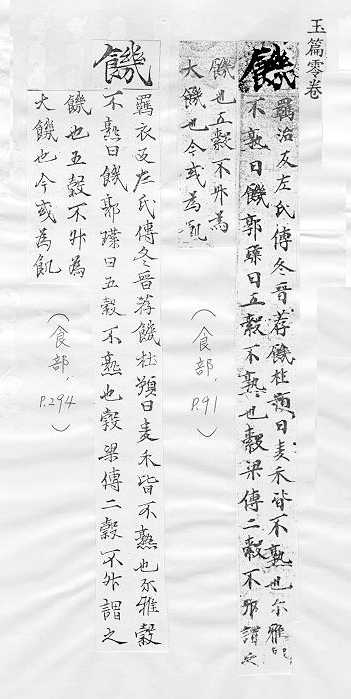 玉篇零卷
饑
羇治反左氏傳冬晉荐饑杜預曰麦禾皆不熟也尒雅
不熟曰饑郭璞曰五穀不熟也穀梁傳二穀不升謂之
饑也五穀不升為
大饑也今或為飢
(食部, P.91)
饑
羇衣反左氏傳冬晉荐饑杜預曰麦禾皆不熟也尒雅穀
不熟曰饑郭璞曰五穀不熟也穀梁傳二穀不升謂之
饑也五穀不升為
大饑也今或為飢
(食部, P.294)